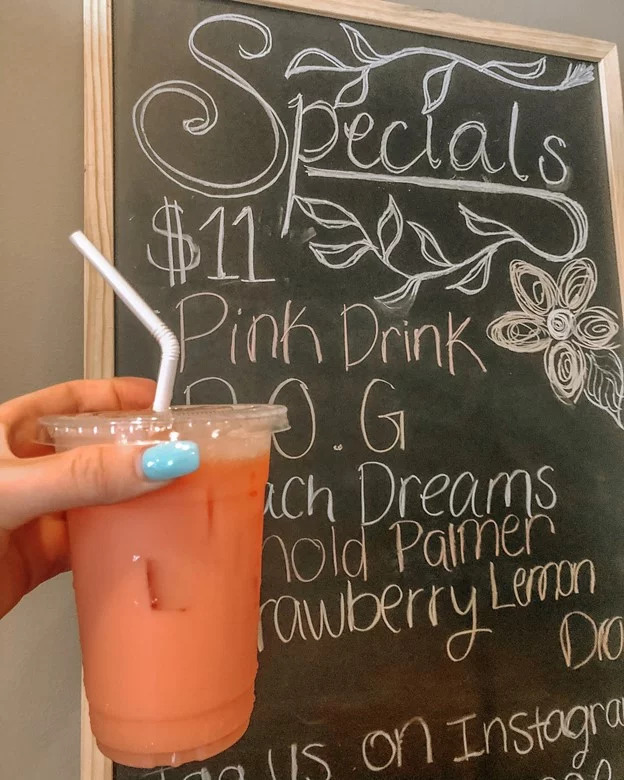 Specials
$11
Pink Drink
O.G
ach Dreams
nold Palmer
rawberry Lemon
Dro
us on Instagra